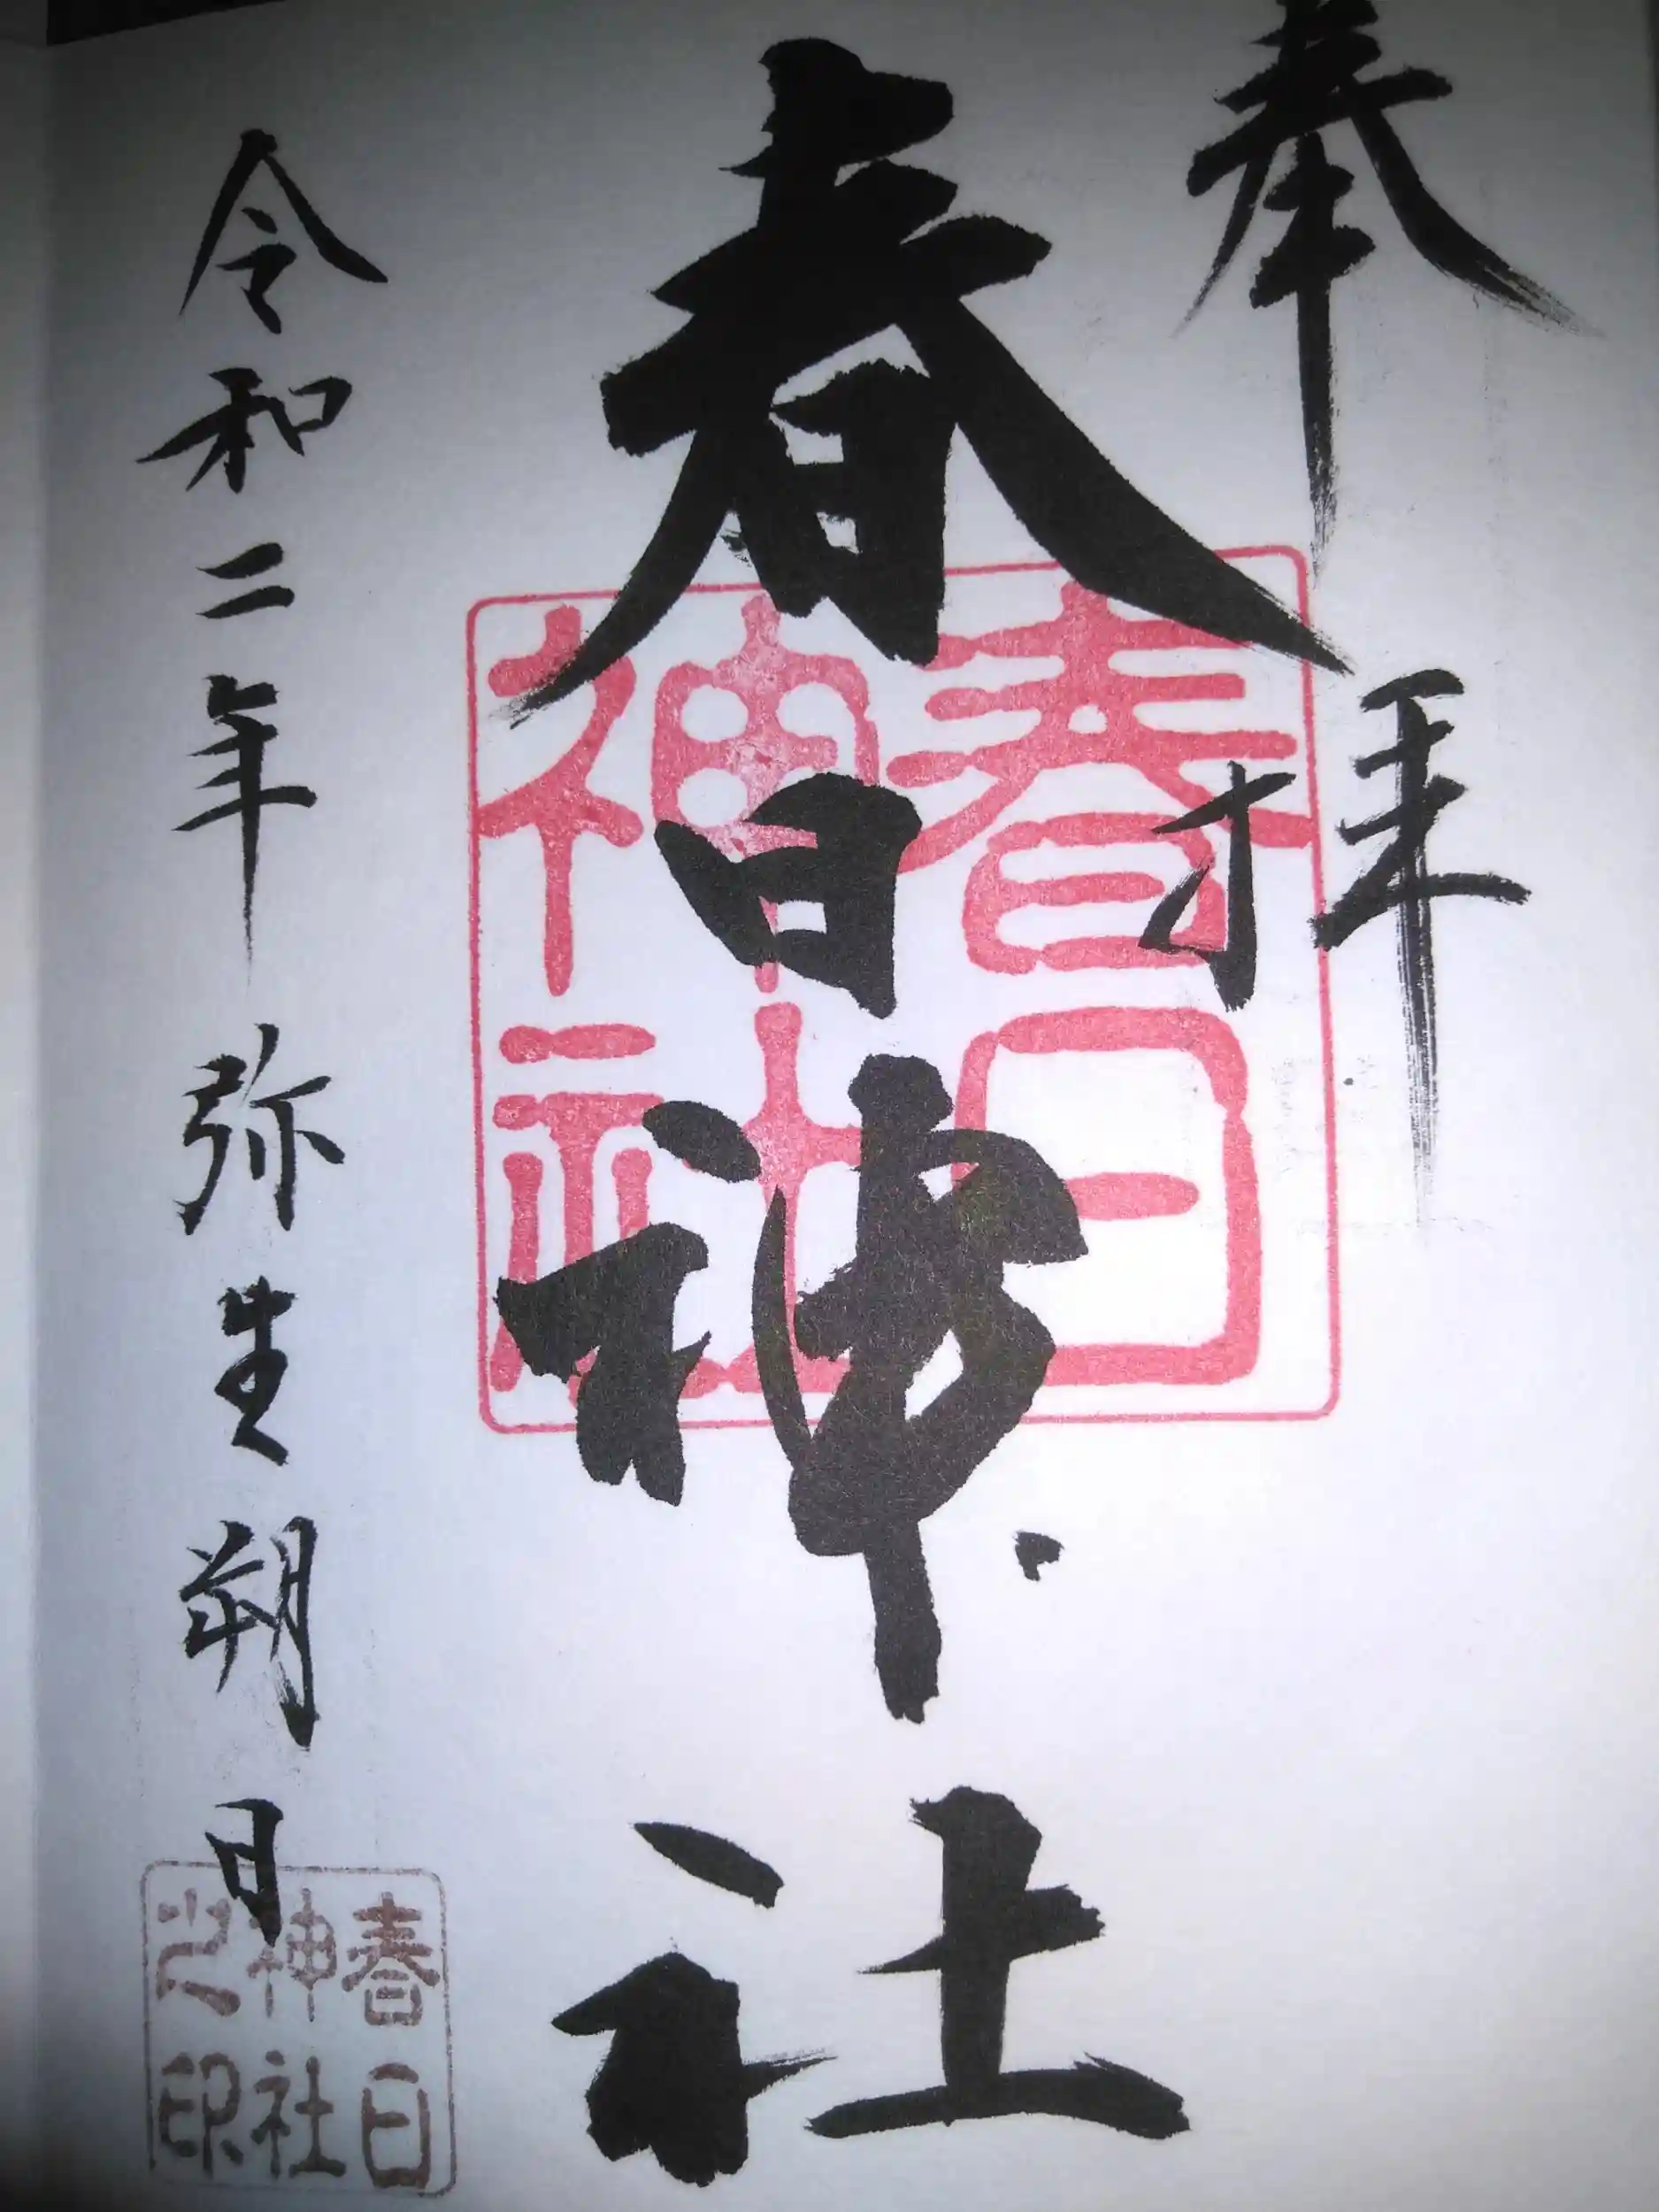 奉拝
春日神社
春日
神社
令和二年弥生朔日
春日
神社
之印